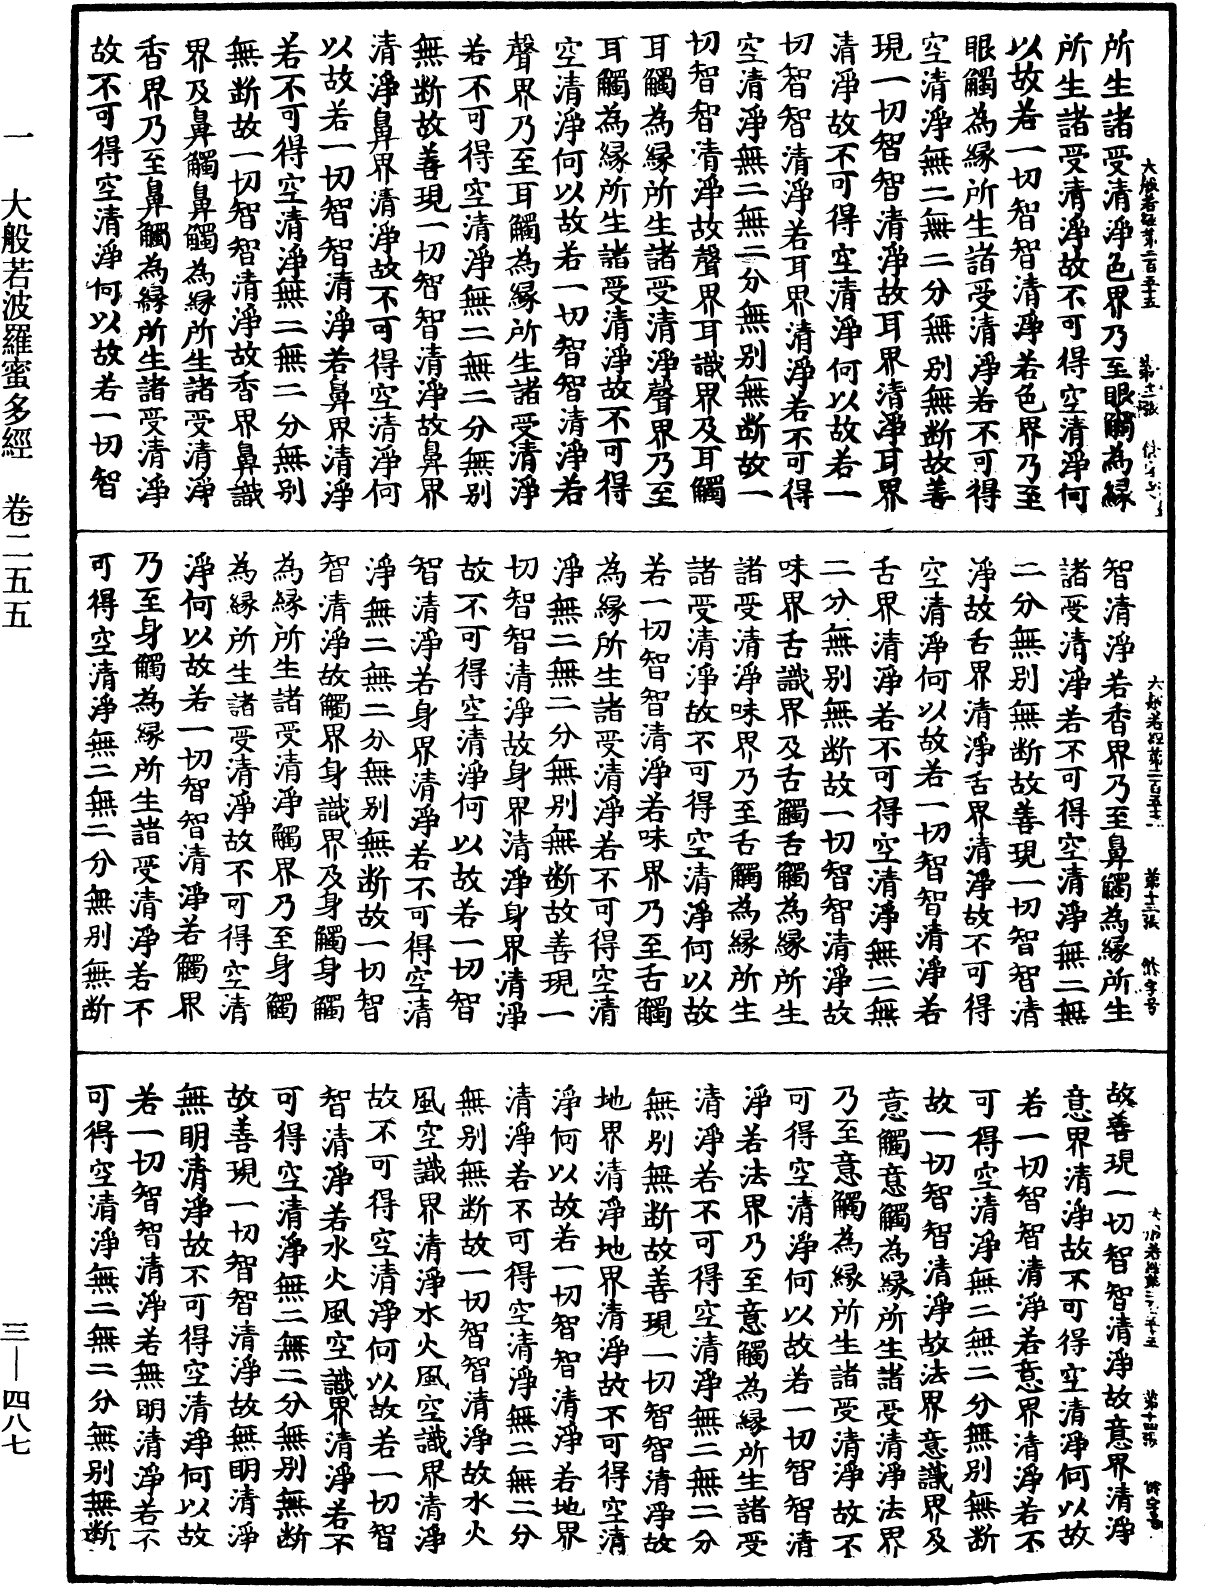 大般若經第二百五十五
所生諸受清淨色界乃至眼觸為緣
所生諸受清淨故不可得空清淨何
以故若一切智智清淨若色界乃至
眼觸為緣所生諸受清淨若不可得
空清淨無二無二分無别無断故善
現一切智智清淨故耳界清淨耳界
清淨故不可得空清淨何以故若一
切智智清淨若耳界清淨若不可得
空清淨無二無二分無别無断故一
切智智清淨故聲界耳識界及耳觸
耳觸為緣所生諸受清淨聲界乃至
耳觸為緣所生諸受清淨故不可得
空清淨何以故若一切智智清淨若
聲界乃至耳觸為緣所生諸受清淨
若不可得空清淨無二無二分無别
無断故善現一切智智清淨故鼻界
清淨鼻界清淨故不可得空清淨何
以故若一切智智清淨若鼻界清淨
若不可得空清淨無二無二分無别
無断故一切智智清淨故香界鼻識
界及鼻觸鼻觸為緣所生諸受清淨
香界乃至鼻觸為緣所生諸受清淨
故不可得空清淨何以故若一切智
大般若經第二百五十五 第十三張
智清淨若香界乃至鼻觸為緣所生
諸受清淨若不可得空清淨無二無
二分無别無断故善現一切智智清
淨故舌界清淨舌界清淨故不可得
空清淨何以故若一切智智清淨若
舌界清淨若不可得空清淨無二無
二分無别無断故一切智智清淨故
味界舌識界及舌觸舌觸為緣所生
諸受清淨味界乃至舌觸為緣所生
諸受清淨故不可得空清淨何以故
若一切智智清淨若味界乃至舌觸
為緣所生諸受清淨若不可得空清
淨無二無二分無别無断故善現一
切智智清淨故身界清淨身界清淨
故不可得空清淨何以故若一切智
智清淨若身界清淨若不可得空清
淨無二無二分無别無断故一切智
智清淨故觸界身識界及身觸身觸
為緣所生諸受清淨觸界乃至身觸
為緣所生諸受清淨故不可得空清
淨何以故若一切智智清淨若觸界
乃至身觸為緣所生諸受清淨若不
可得空清淨無二無二分無别無断
第十四張
故善現一切智智清淨故意界清淨
意界清淨故不可得空清淨何以故
若一切智智清淨若意界清淨若不
可得空清淨無二無二分無别無断
故一切智智清淨故法界意識界及
意觸意觸為緣所生諸受清淨法界
乃至意觸為緣所生諸受清淨故不
可得空清淨何以故若一切智智清
淨若法界乃至意觸為緣所生諸受
清淨若不可得空清淨無二無二分
無别無断故善現一切智智清淨故
地界清淨地界清淨故不可得空清
淨何以故若一切智智清淨若地界
清淨若不可得空清淨無二無二分
無别無断故一切智智清淨故水火
風空識界清淨水火風空識界清淨
故不可得空清淨何以故若一切智
智清淨若水火風空識界清淨若不
可得空清淨無二無二分無别無断
故善現一切智智清淨故無明清淨
無明清淨故不可得空清淨何以故
若一切智智清淨若無明清淨若不
可得空清淨無二無二分無别無断
一 大般若波羅蜜多經 卷二五五
三—四八七